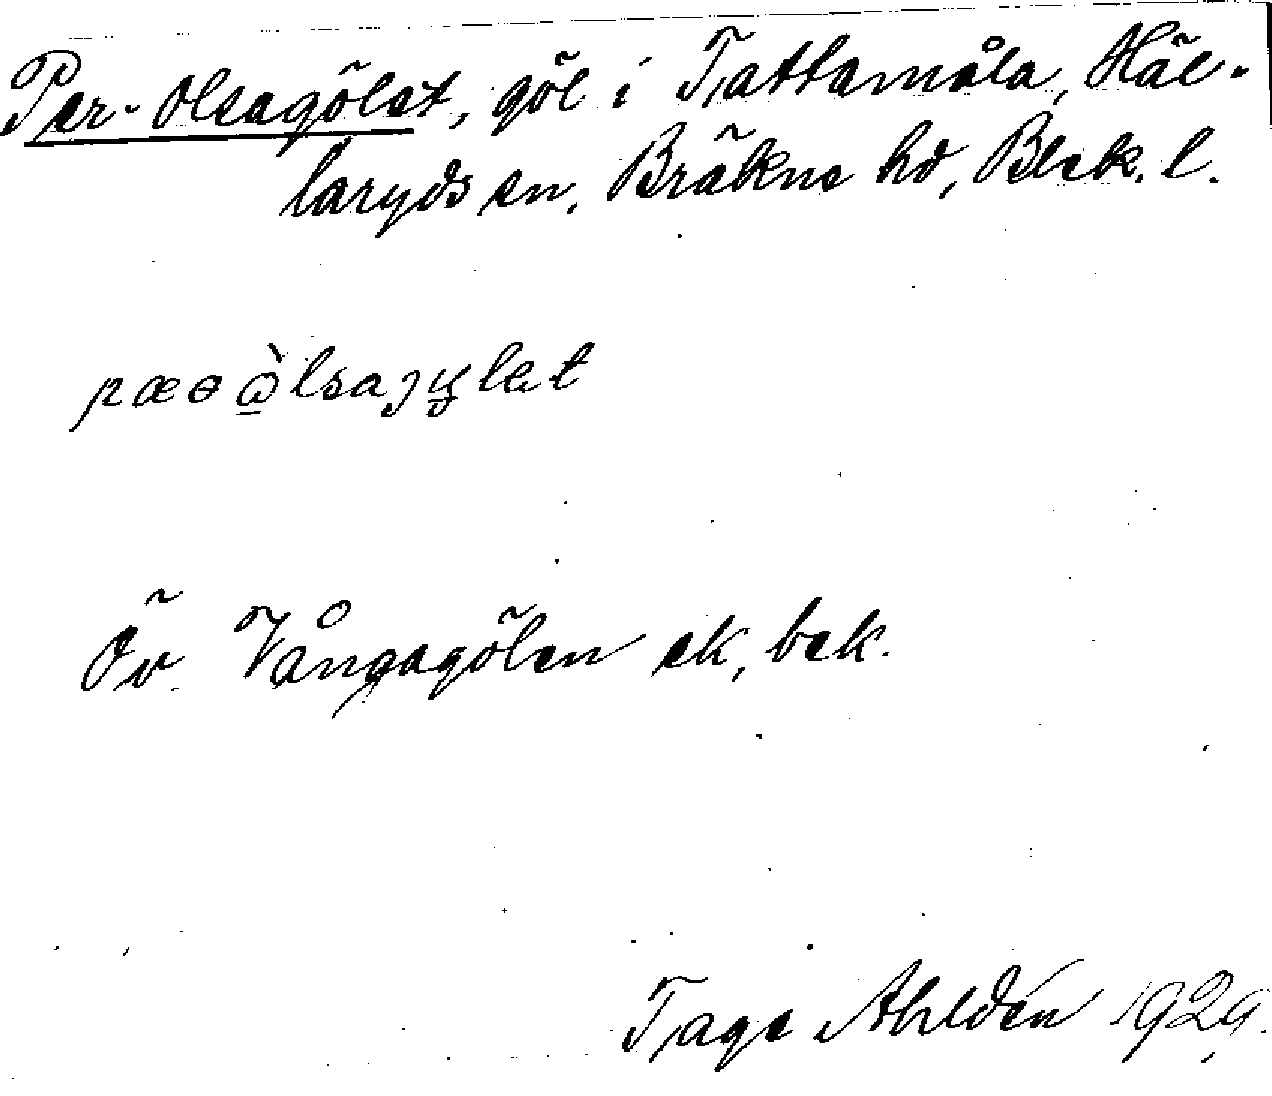 Per-Olsagölet, göl i Tattamåla, Häl-
laryds sn, Bräkne hd, Blek. l.
pæɵ ɷ̀lsaȷylet
Öv. Vångagölen ek, bek.
Tage Ahldén 1929.